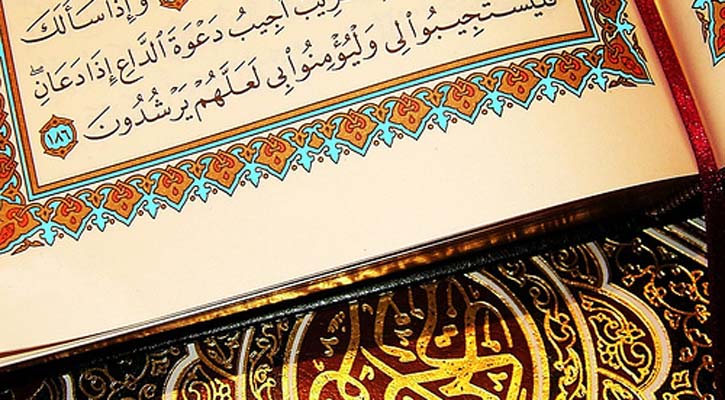 وَإِذَا سَأَلَكَ
قَرِيبٌ أُجِيبُ دَعْوَةَ ٱلدَّاعِ إِذَا دَعَانِۖ
فَلْيَسْتَجِيبُوا۟ لِى وَلْيُؤْمِنُوا۟ بِى لَعَلَّهُمْ يَرْشُدُونَ ١٨٦